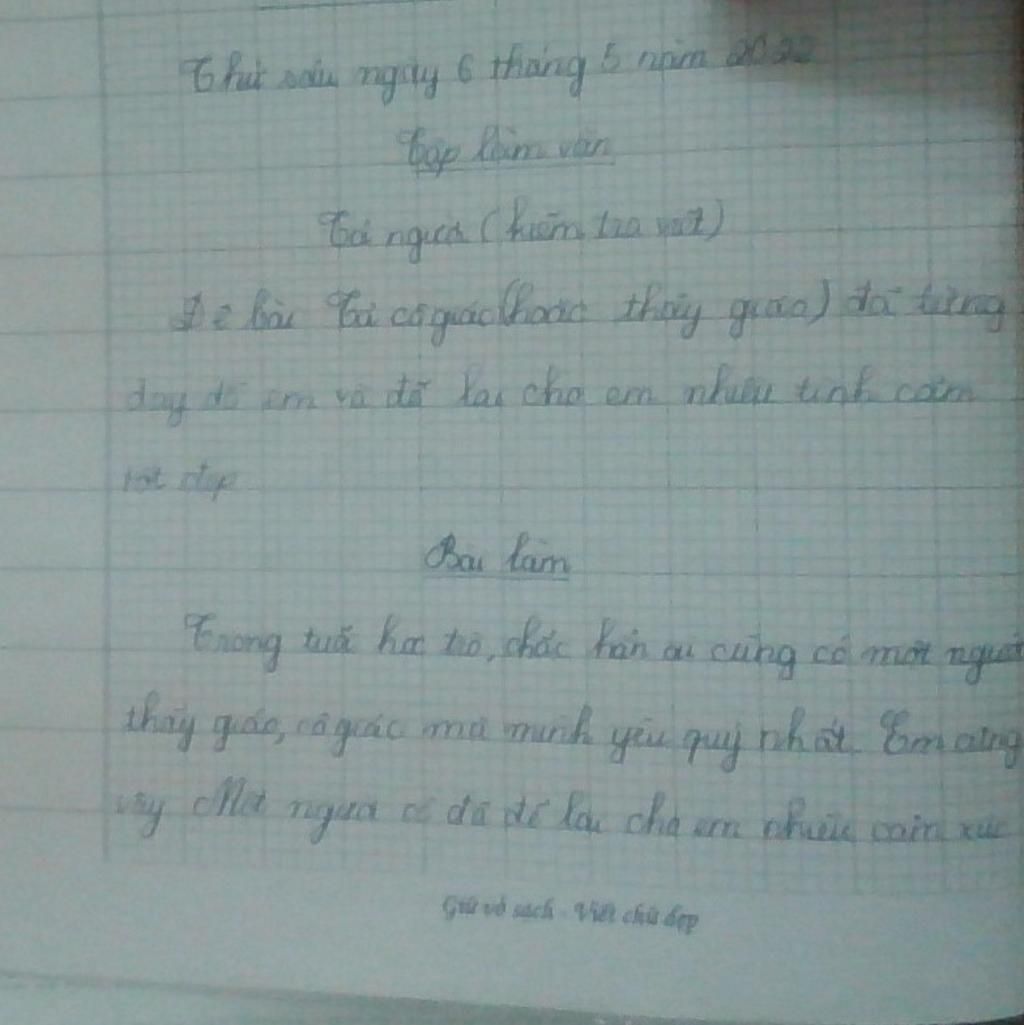 Thứ sáu ngày 6 tháng 5 năm 2022
Tập làm văn
Tả người (kiểm tra viết)
Đề bài Tả cô giáo (hoặc thầy giáo) đã từng
dạy dỗ em và để lại cho em nhiều tình cảm
tốt đẹp
Bài làm
Trong tuổi học trò, chắc hẳn ai cũng có một người
thầy giáo, cô giáo mà mình yêu quý nhất. Em cũng
vậy Một người cô đã để lại cho em nhiều cảm xúc
Giữ vở sạch - Viết chữ đẹp